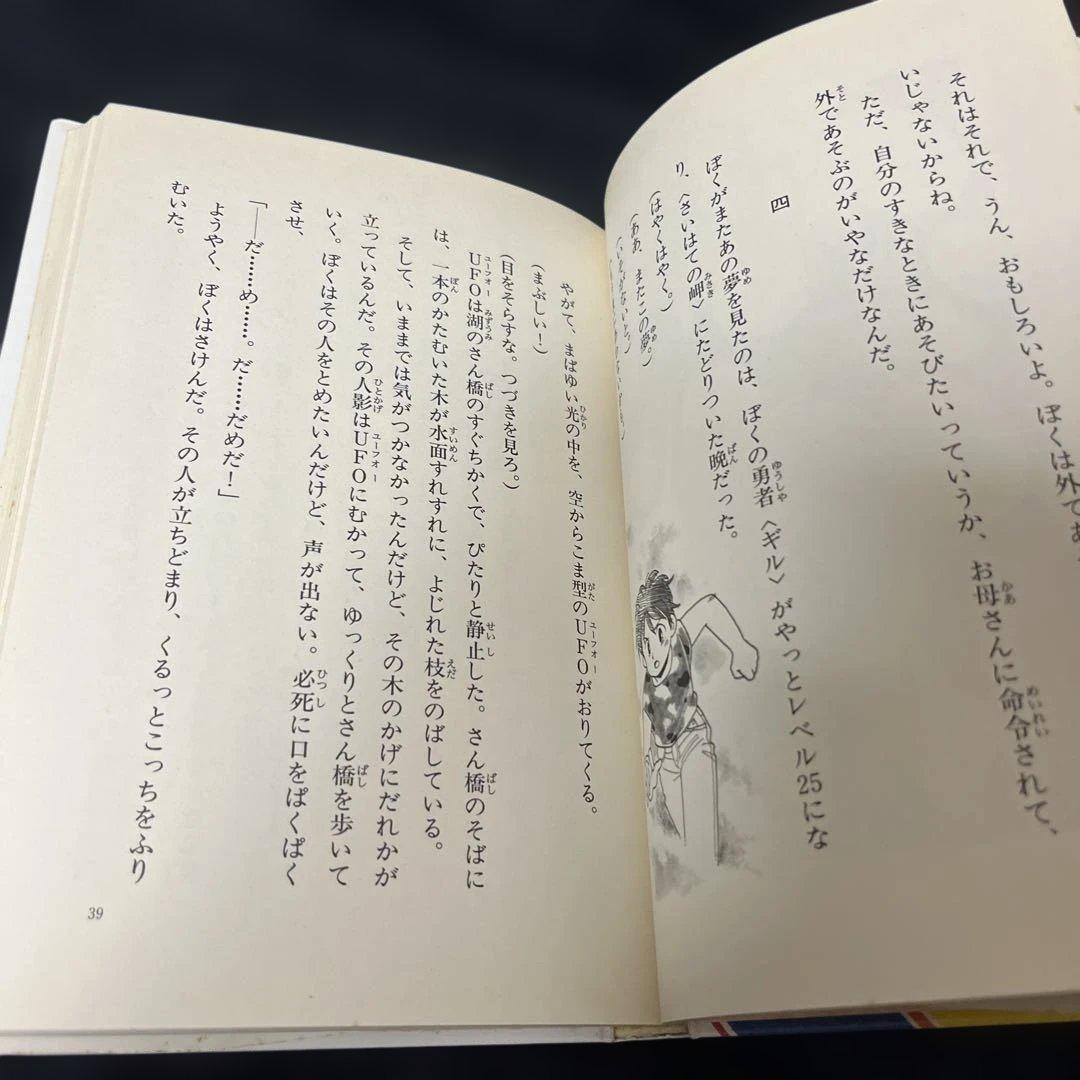 それはそれで、うん、おもしろいよ。ぼくは外であ
いじゃないからね。
ただ、自分のすきなときにあそびたいっていうか、お母さんに命令されて、
外であそぶのがいやなだけなんだ。
四
ぼくがまたあの夢を見たのは、ぼくの勇者〈ギル〉がやっとレベル25にな
り、〈さいはての岬〉にたどりついた晩だった。
(はやくはやく。)
(ああ、またこの夢。)
やがて、まばゆい光の中を、空からこま型のUFOがおりてくる。
(まぶしい！)
(目をそらすな。つづきを見ろ。)
UFOは湖のさん橋のすぐちかくで、ぴたりと静止した。さん橋のそばに
は、一本のかたむいた木が水面すれすれに、よじれた枝をのばしている。
そして、いままでは気がつかなかったんだけど、その木のかげにだれかが
立っているんだ。その人影はUFOにむかって、ゆっくりとさん橋を歩いて
いく。ぼくはその人をとめたいんだけど、声が出ない。必死に口をぱくぱく
させ、
「――だ……め……。だ……だめだ！」
ようやく、ぼくはさけんだ。その人が立ちどまり、くるっとこっちをふり
むいた。
39